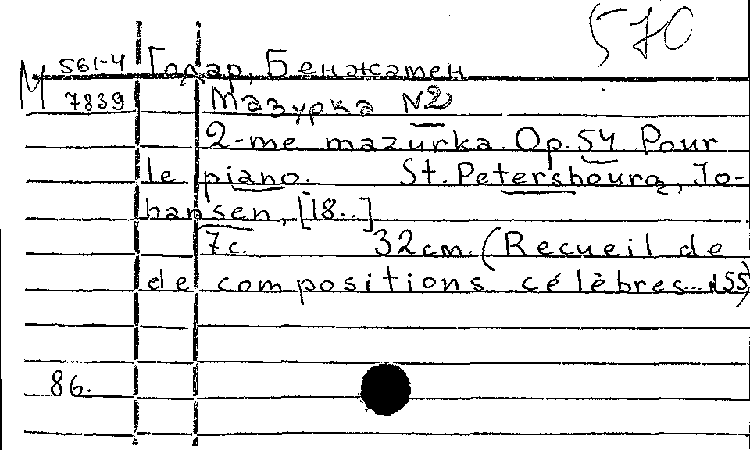 570
М 561-4 Годар, Бенжамен
7839 Мазурка №2
2-me mazurka. Op. 54 Pour
le piano. St. Petersbourg, Jo-
hansen, [18..]
7с. 32cm. (Recueil de
de compositions célèbres... №55)
86.